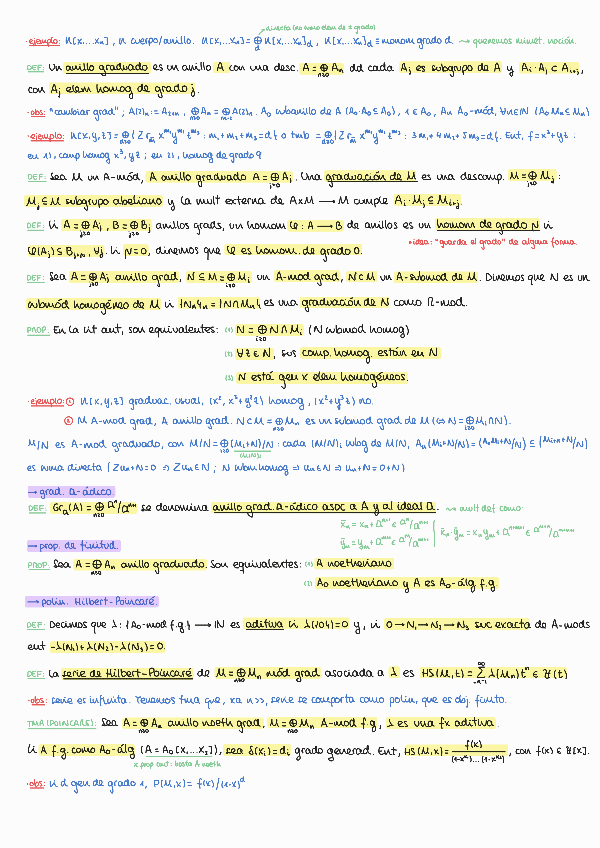 directa (en mono elem de ≠ grado)
·ejemplo: K[x₁...xₙ], K cuerpo/anillo. K[x₁...xₙ] = ⊕_d K[x₁...xₙ]_d, K[x₁...xₙ]_d = monom grado d. ⇝ queremos mimét. noción.
DEF: Un anillo graduado es un anillo A con una desc. A = ⊕_{n≥0} Aₙ dd cada Aⱼ es subgrupo de A y Aᵢ·Aⱼ ⊂ Aᵢ₊ⱼ,
con Aⱼ elem homog de grado j.
·obs: "cambiar grad"; A(2)ₙ := A₂₊ₙ, ⊕_{n≥0} Aₙ = ⊕_{n≥-2} A(2)ₙ. A₀ subanillo de A (A₀·A₀ ⊆ A₀), 1 ∈ A₀, Aₙ A₀-mód, ∀n∈ℕ (A₀Mₙ ⊆ Mₙ)
·ejemplo: K[x,y,z] = ⊕_{d≥0} {Σ r_m̄ x^{m₁} y^{m₂} z^{m₃} : m₁+m₂+m₃=d} o tmb = ⊕_{d≥0} {Σ r_m̄ x^{m₁} y^{m₂} z^{m₃} : 3m₁+4m₂+5m₃=d}. Ent, f=x³+yz :
en 1), comp homog x³, yz ; en 2), homog de grado 9
DEF: Sea M un A-mód, A anillo graduado A = ⊕_{j≥0} Aⱼ. Una graduación de M es una descomp. M = ⊕_{j≥0} Mⱼ :
Mⱼ ⊆ M subgrupo abeliano y la mult externa de A×M → M cumple Aᵢ·Mⱼ ⊆ Mᵢ₊ⱼ.
DEF: Si A = ⊕_{j≥0} Aⱼ, B = ⊕_{j≥0} Bⱼ anillos grads, un homom φ: A → B de anillos es un homom de grado N si
φ(Aⱼ) ⊆ Bⱼ₊ₙ, ∀j. Si N=0, diremos que φ es homom. de grado 0.
·idea: "guarda el grado" de alguna forma.
DEF: Sea A = ⊕_{j≥0} Aⱼ anillo grad, N ⊆ M = ⊕_{j≥0} Mⱼ un A-mod grad, N ⊂ M un A-submod de M. Diremos que N es un
submód homogéneo de M si {Nₙ}ₙ = {N∩Mₙ} es una graduación de N como A-mod.
PROP: En la sit ant, son equivalentes: (1) N = ⊕_{i≥0} N∩Mᵢ (N submod homog)
(2) ∀z ∈ N, sus comp. homog. están en N
(3) N está gen x elem homogéneos.
·ejemplo: ① K[x,y,z] graduac. usual, (x², x³+y²z) homog, (x²+y³z) no.
② M A-mod grad, A anillo grad. N ⊂ M = ⊕_{n≥0} Mₙ es un submod grad de M (⇔ N = ⊕_{i≥0} Mᵢ∩N).
M/N es A-mod graduado, con M/N = ⊕_{i≥0} (Mᵢ+N)/N : cada (M/N)ᵢ subg de M/N, Aₙ(Mᵢ+N/N) = (AₙMᵢ+N/N) ⊆ (Mᵢ₊ₙ+N/N)
(M/N)ᵢ
es suma directa (Σuₙ+N=0 ⇒ Σuₙ∈N ; N submhomog ⇒ uₙ∈N ⇒ uₙ+N=0+N)
→ grad. a-ádico
DEF: Gr_a(A) = ⊕_{n≥0} aⁿ/aⁿ⁺¹ se denomina anillo grad. a-ádico asoc a A y al ideal a. ⇝ mult def como:
x̄ₙ = xₙ + aⁿ⁺¹ ∈ aⁿ/aⁿ⁺¹
ȳₘ = yₘ + aᵐ⁺¹ ∈ aᵐ/aᵐ⁺¹
x̄ₙ·ȳₘ = xₙyₘ + aⁿ⁺ᵐ⁺¹ ∈ aⁿ⁺ᵐ/aⁿ⁺ᵐ⁺¹
→ prop. de finitud.
PROP: Sea A = ⊕_{n≥0} Aₙ anillo graduado. Son equivalentes: (1) A noetheriano
(2) A₀ noetheriano y A es A₀-álg f.g.
→ polin. Hilbert-Poincaré.
DEF: Decimos que λ: {A₀-mod f.g.} → ℕ es aditiva si λ({0})=0 y, si 0→N₁→N₂→N₃ suc exacta de A-mods
ent -λ(N₁)+λ(N₂)-λ(N₃)=0.
DEF: La serie de Hilbert-Poincaré de M = ⊕_{n≥0} Mₙ mód grad asociada a λ es HS(M,t) = Σ_{n=-1}^∞ λ(Mₙ)tⁿ ∈ ℤ(t)
·obs: serie es infinita. Tenemos tma que, xa n>>, serie se comporta como polin, que es obj. finito.
TMA (POINCARÉ): Sea A = ⊕_{n≥0} Aₙ anillo noeth grad, M = ⊕_{n≥0} Mₙ A-mod f.g, λ es una fx aditiva.
Si A f.g. como A₀-álg (A = A₀[x₁...x₂]), sea δ(xᵢ)=dᵢ grado generad. Ent, HS(M,x) = f(x)/(1-x^{d₁})...(1-x^{dₛ}), con f(x) ∈ ℤ[x].
x prop ant: basta A noeth
·obs: si d gen de grado 1, P(M,x) = f(x)/(1-x)^d